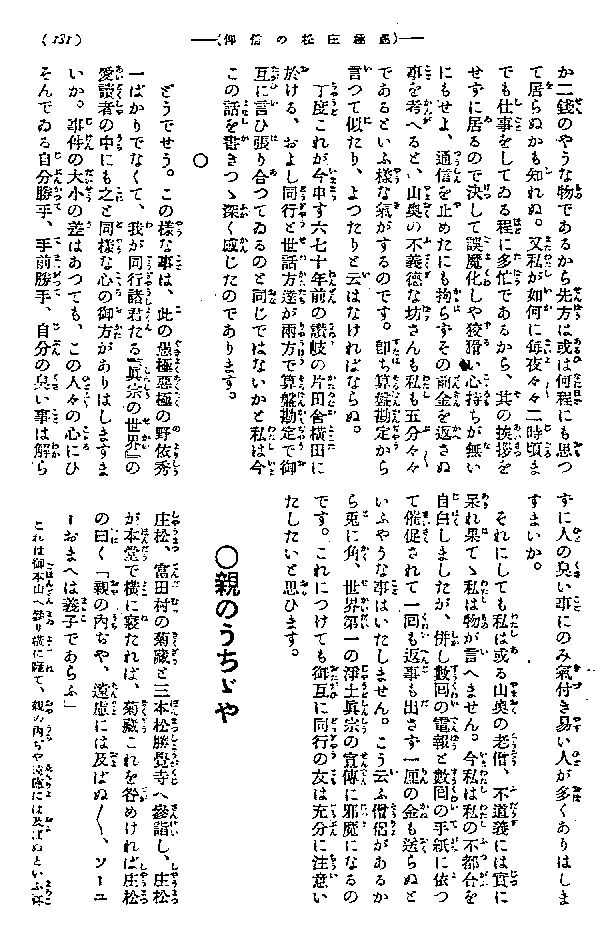 (181) ――(愚極庄松の信仰)――
か二錢のやうな物であるから先方は或は何程にも思つ
て居らぬかも知れぬ。又私が如何に毎夜々々二時頃ま
でも仕事をしてゐる程に多忙であるから、其の挨拶を
せずに居るので決して誤魔化しや狡猾い心持ちが無い
にもせよ、通信を止めたにも拘らずその前金を返さぬ
事を考へると、山奥の不義德な坊さんも私も五分々々
であるといふ樣な氣がするのです。卽ち算盤勘定から
言つて似たり、よつたりと云はなければならぬ。
丁度これが今申す六七十年前の讃岐の片田舍橫田に
於ける、およし同行と世話方達が兩方で算盤勘定で御
互に言ひ張り合つてゐるのと同じではないかと私は今
この話を書きつゝ深く感じたのであります。
○
どうでせう。この樣な事は、此の愚極惡極の野依秀
一ばかりでなくて、我が同行諸君たる『眞宗の世界』の
愛讀者の中にも之と同樣な心の御方がありはしますま
いか。事件の大小の差はあつても、この人々の心にひ
そんでゐる自分勝手、手前勝手、自分の臭い事は解ら
ずに人の臭い事にのみ氣付き易い人が多くありはしま
すまいか。
それにしても私は或る山奥の老僧、不道義には實に
呆れ果てゝ私は物が言へません。今私は私の不都合を
自白しましたが、併し數回の電報と數回の手紙に依つ
て催促されて一回も返事も出さず一厘の金も送らぬと
いふやうな事はいたしません。こう云ふ僧侶があるか
ら兎に角、世界第一の淨土眞宗の宣傳に邪魔になるの
です。これにつけても御互に同行の友は充分に注意い
たしたいと思ひます。
○親のうちゞや
庄松、富田村の菊藏と三本松勝覺寺へ參詣し、庄松
が本堂で橫に寢たれば、菊藏これを咎めければ庄松
の曰く「親の內ぢや、遠慮には及ばぬ〱、ソーユ
ーおまへは養子であらふ」
これは御本山へ參り橫に寢て、親の內ぢや遠慮には及ばぬといふ